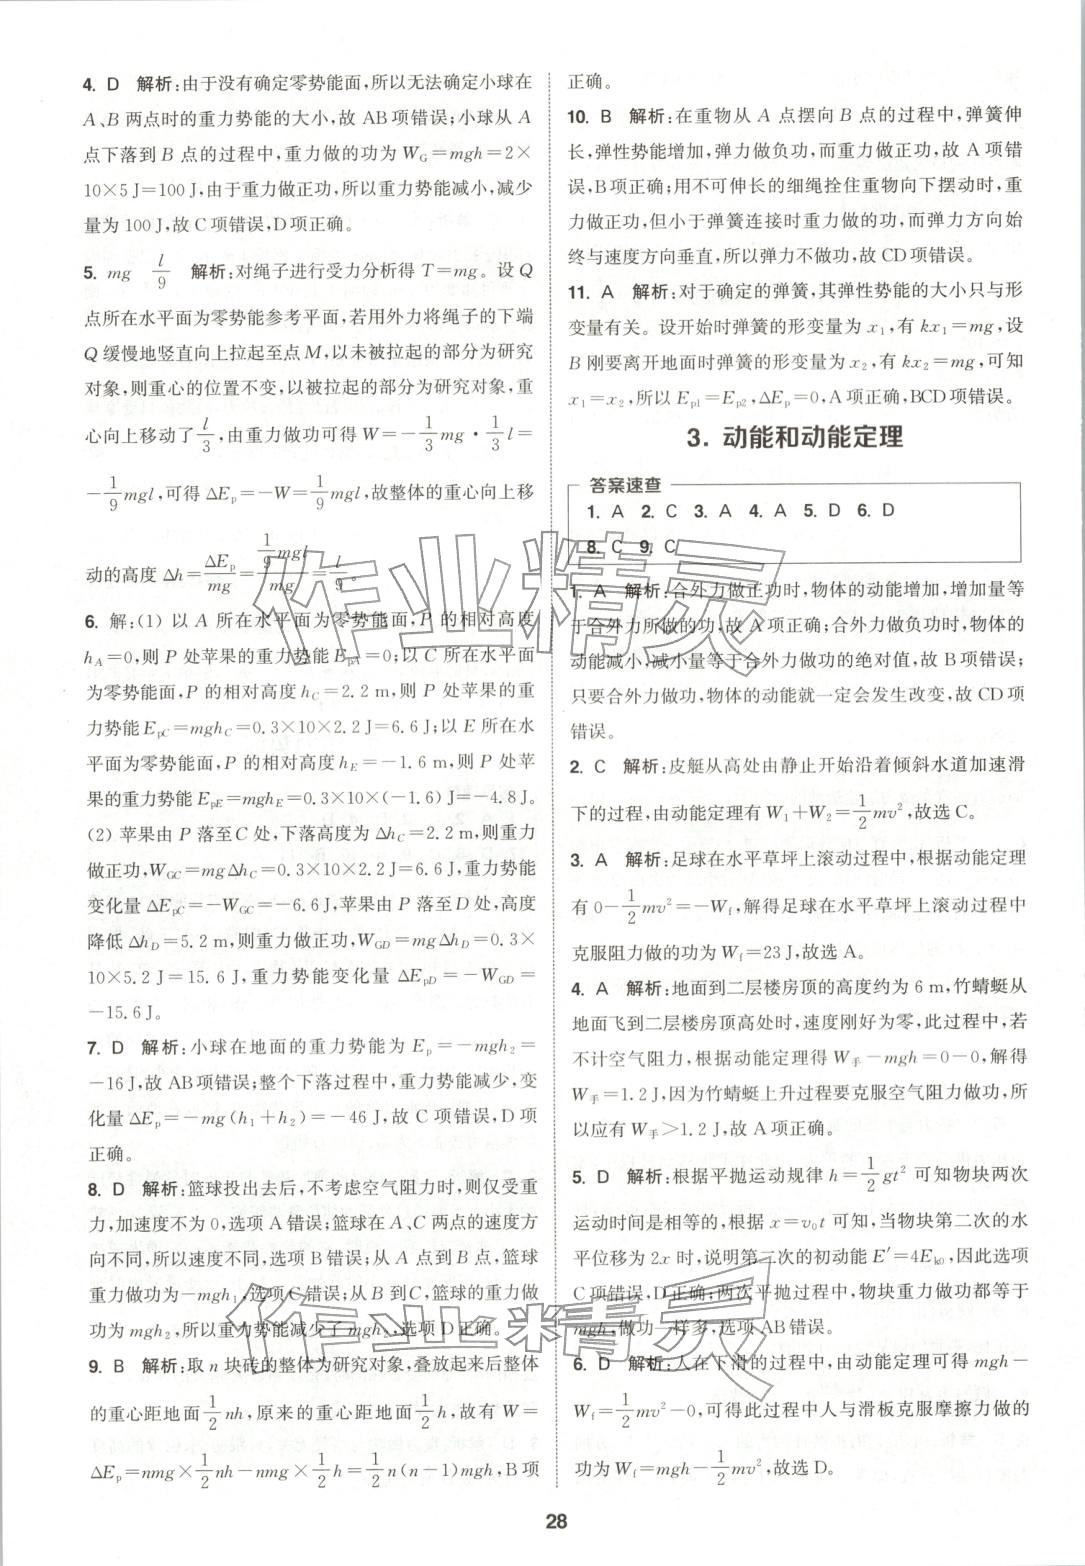 4. D 解析:由于没有确定零势能面,所以无法确定小球在
A、B 两点时的重力势能的大小,故 AB项错误;小球从 A
点下落到 B 点的过程中,重力做的功为 W_G=mgh=2×
10×5 J=100 J,由于重力做正功,所以重力势能减小,减少
量为 100 J,故 C 项错误,D项正确。
5. mg l/9 解析:对绳子进行受力分析得 T=mg。设 Q
点所在水平面为零势能参考平面,若用外力将绳子的下端
Q 缓慢地竖直向上拉起至点 M,以未被拉起的部分为研究
对象,则重心的位置不变,以被拉起的部分为研究对象,重
心向上移动了 l/3,由重力做功可得 W=-1/3 mg·1/3 l=
-1/9 mgl,可得 ΔE_p=-W=1/9 mgl,故整体的重心向上移
动的高度 Δh=ΔE_p/mg=(1/9 mgl)/mg=l/9。
6. 解:(1) 以 A 所在水平面为零势能面,P 的相对高度
h_A=0,则 P 处苹果的重力势能 E_pA=0;以 C 所在水平面
为零势能面,P 的相对高度 h_C=2.2 m,则 P 处苹果的重
力势能 E_pC=mgh_C=0.3×10×2.2 J=6.6 J;以 E 所在水
平面为零势能面,P 的相对高度 h_E=-1.6 m,则 P 处苹
果的重力势能 E_pE=mgh_E=0.3×10×(-1.6) J=-4.8 J。
(2) 苹果由 P 落至C 处,下落高度为 Δh_C=2.2 m,则重力
做正功,W_GC=mgΔh_C=0.3×10×2.2 J=6.6 J,重力势能
变化量 ΔE_pC=-W_GC=-6.6 J,苹果由 P 落至D 处,高度
降低 Δh_D=5.2 m,则重力做正功,W_GD=mgΔh_D=0.3×
10×5.2 J=15.6 J,重力势能变化量 ΔE_pD=-W_GD=
-15.6 J。
7. D 解析:小球在地面的重力势能为 E_p=-mgh_2=
-16 J,故 AB项错误;整个下落过程中,重力势能减少,变
化量 ΔE_p=-mg(h_1+h_2)=-46 J,故 C 项错误,D项
正确。
8. D 解析:篮球投出去后,不考虑空气阻力时,则仅受重
力,加速度不为 0,选项 A 错误;篮球在 A、C 两点的速度方
向不同,所以速度不同,选项 B错误;从 A 点到 B 点,篮球
重力做功为-mgh_1,选项 C错误;从 B 到 C,篮球的重力做
功为 mgh_2,所以重力势能减少了 mgh_2,选项 D正确。
9. B 解析:取 n 块砖的整体为研究对象,叠放起来后整体
的重心距地面 1/2 nh,原来的重心距地面 1/2 h,故有 W=
ΔE_p=nmg×1/2 nh-nmg×1/2 h=1/2 n(n-1)mgh,B项
正确。
10. B 解析:在重物从 A 点摆向 B 点的过程中,弹簧伸
长,弹性势能增加,弹力做负功,而重力做正功,故 A 项错
误,B项正确;用不可伸长的细绳拴住重物向下摆动时,重
力做正功,但小于弹簧连接时重力做的功,而弹力方向始
终与速度方向垂直,所以弹力不做功,故 CD项错误。
11. A 解析:对于确定的弹簧,其弹性势能的大小只与形
变量有关。设开始时弹簧的形变量为 x_1,有 kx_1=mg,设
B 刚要离开地面时弹簧的形变量为 x_2,有 kx_2=mg,可知
x_1=x_2,所以 E_p1=E_p2,ΔE_p=0,A项正确,BCD项错误。
3. 动能和动能定理
答案速查
1. A 2. C 3. A 4. A 5. D 6. D
8. C 9. C
1. A 解析:合外力做正功时,物体的动能增加,增加量等
于合外力所做的功,故 A项正确;合外力做负功时,物体的
动能减小,减小量等于合外力做功的绝对值,故 B项错误;
只要合外力做功,物体的动能就一定会发生改变,故 CD项
错误。
2. C 解析:皮艇从高处由静止开始沿着倾斜水道加速滑
下的过程,由动能定理有 W_1+W_2=1/2 mv²,故选 C。
3. A 解析:足球在水平草坪上滚动过程中,根据动能定理
有 0-1/2 mv²=-W_f,解得足球在水平草坪上滚动过程中
克服阻力做的功为 W_f=23 J,故选 A。
4. A 解析:地面到二层楼房顶的高度约为 6 m,竹蜻蜓从
地面飞到二层楼房顶高处时,速度刚好为零,此过程中,若
不计空气阻力,根据动能定理得 W_手-mgh=0-0,解得
W_手=1.2 J,因为竹蜻蜓上升过程要克服空气阻力做功,所
以应有 W_手>1.2 J,故 A 项正确。
5. D 解析:根据平抛运动规律 h=1/2 gt² 可知物块两次
运动时间是相等的,根据 x=v_0t 可知,当物块第二次的水
平位移为 2x 时,说明第二次的初动能 E'=4E_k0,因此选项
C项错误,D正确;两次平抛过程中,物块重力做功都等于
mgh,做功一样多,选项 AB错误。
6. D 解析:人在下滑的过程中,由动能定理可得 mgh-
W_f=1/2 mv²-0,可得此过程中人与滑板克服摩擦力做的
功为 W_f=mgh-1/2 mv²,故选 D。
28
作业精灵
作业精灵